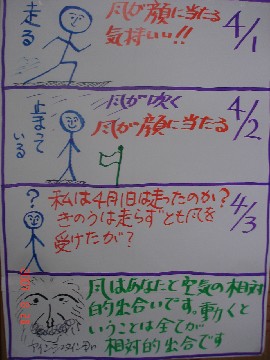 走る
風が顔に当たる
気持いい!!
4/1
止まって
いる
風が吹く
風が顔に当たる
4/2
?
私は4月1日は走ったのか?
きのうは走らずとも風を
受けたが?
4/3
風はあなたと空気の相対
的出合いです。動くと
いうことは全てが
相対的出合です
アインシュタイン